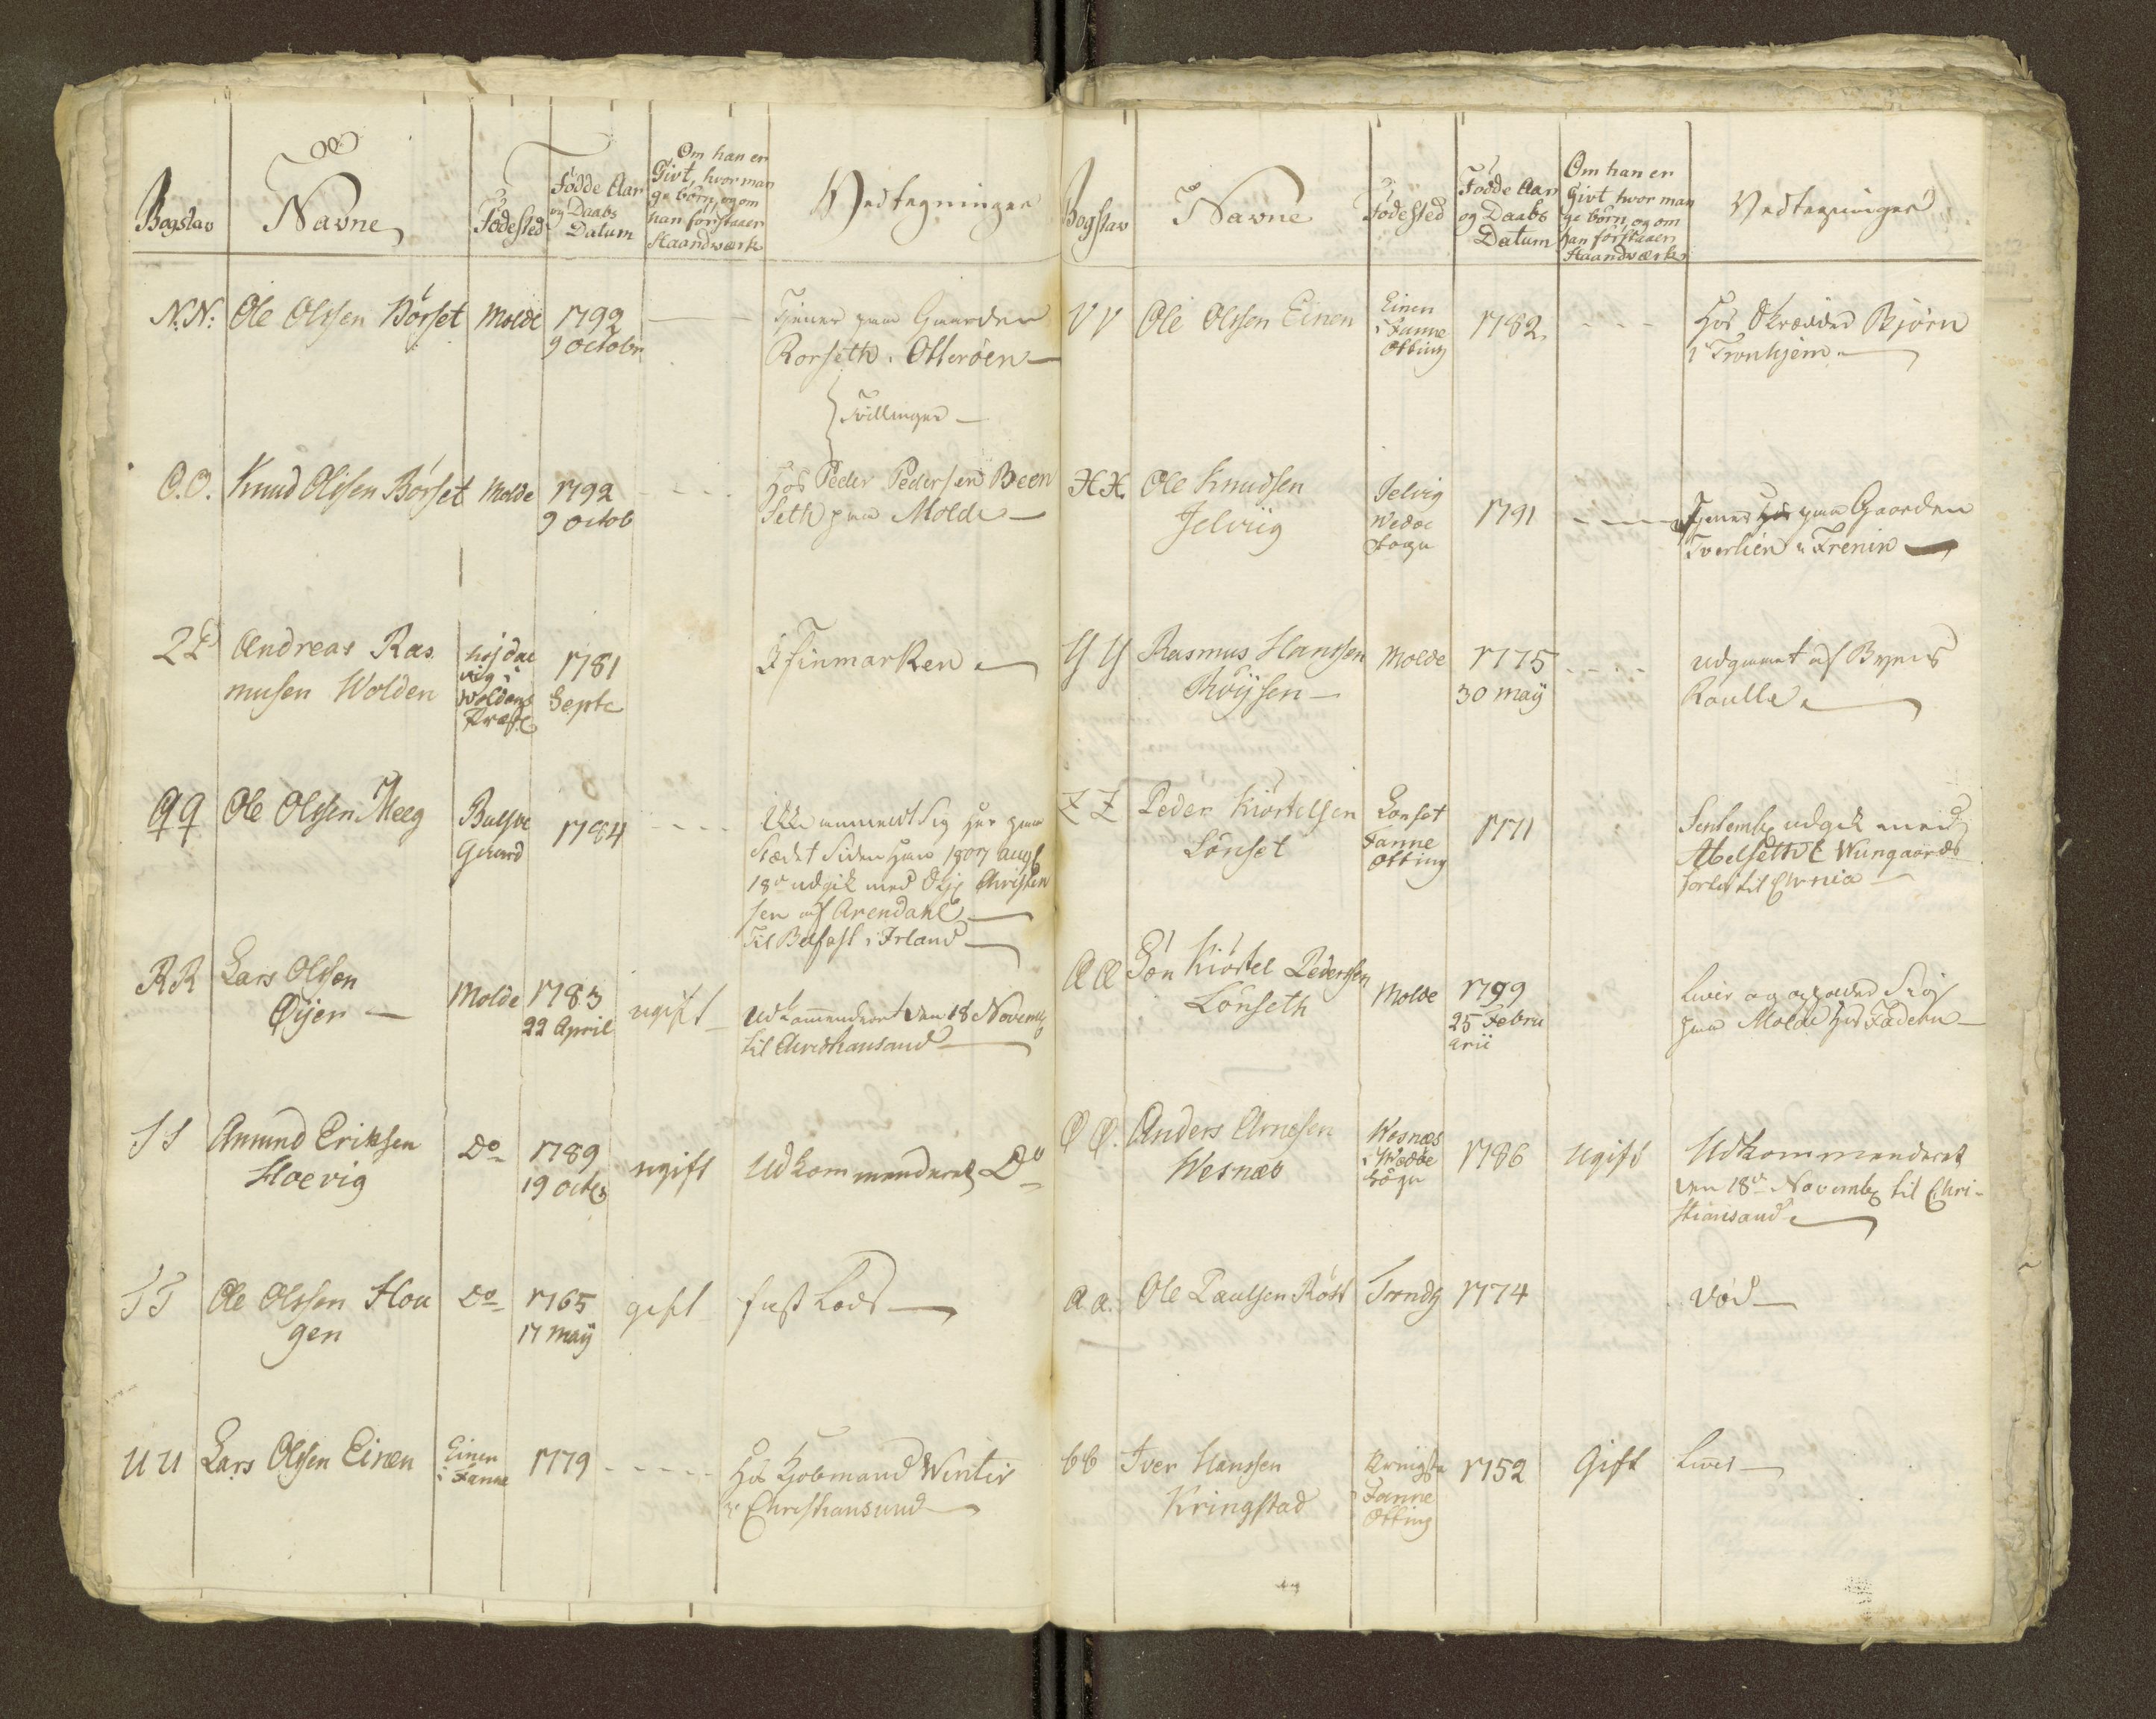 Bogstav
Navne
Fødested
Födde Aar
og Daabs
Datum
Om han er
Givt, hvor man
ge börn, og om
han forstaaer
Haandværk
Vedtegninger
N.N: Ole Olssen Börset Molde 1792
9 octobr
Tjener paa Gaarden
Rorseth i Otteröen
Tvillinger
O.O. Knud Olssen Börset Molde 1792
9 octob
Hos Peder Pedersen Been
Seth paa Molde
Andreas Ras
musen Wolden
Woldens
1781
Septe
I Finmarken
QQ Ole Olssen Meeg
Gaard
1784
Ikke anmeldt sig her paa
Stædet siden han 1807 aug
18de udgik med Skip Christen
sen af Arendahl
til Belfast i Irland
RR Lars Olssen
Öyen
Molde 1783
22 April
ugift
Udkommenderet den 18 Novemb
til Christiansand
SS Amund Eriksen
Hoevig
Do 1789
19 octb
ugift Udkommenderet Do
TT Ole Olssen Hou
gen
Do 1765
17 maÿ
gift fast Lods
UU Lars Olssen Einen
Einen
i Fanne
1779
Hos Kjöbmand Winter
i Christiansund
Bogstav
Navne
Fødested
Födde Aar
og Daabs
Datum
Om han er
Givt hvor man
ge börn, og om
han forstaaer
Haandværk
Vedtegninger
VV Ole Olssen Einen
Einen
i Fanne
Otting
1782
Hos Skrædder Björn
i Tronhjem
XX. Ole Knudsen
Jelviig
Jelvig
Wedøe
Sogn
1791
Tjener hos paa Gaarden
Tverlien i Frenen
YY Rasmus Hanssen
Thöÿsen
Molde 1775
30 maÿ
udgaaet af Byens
Roulle
ZZ Peder Kiörtelsen
Lönset
Lonset
Fanne
Otting
1771
Septemb udgik med
Abelseth & Wungaards
ÆÆ Sön Kiörtel Pederssen
Lönseth
Molde 1799
25 Febru
arii
Lever og
paa Molde hos Faderen
ØØ. Anders Arnesen
Wesnæs
Wesnæs
i Wedöe
Sogn
1786 ugift
Udkommenderet
den 18de Novemb til Chri-
stiansand
aa. Ole Paulsen Röst Trondh 1774 död
bb Iver Hanssen
Kringstad
Fanne
Otting
1752 Gift Lever